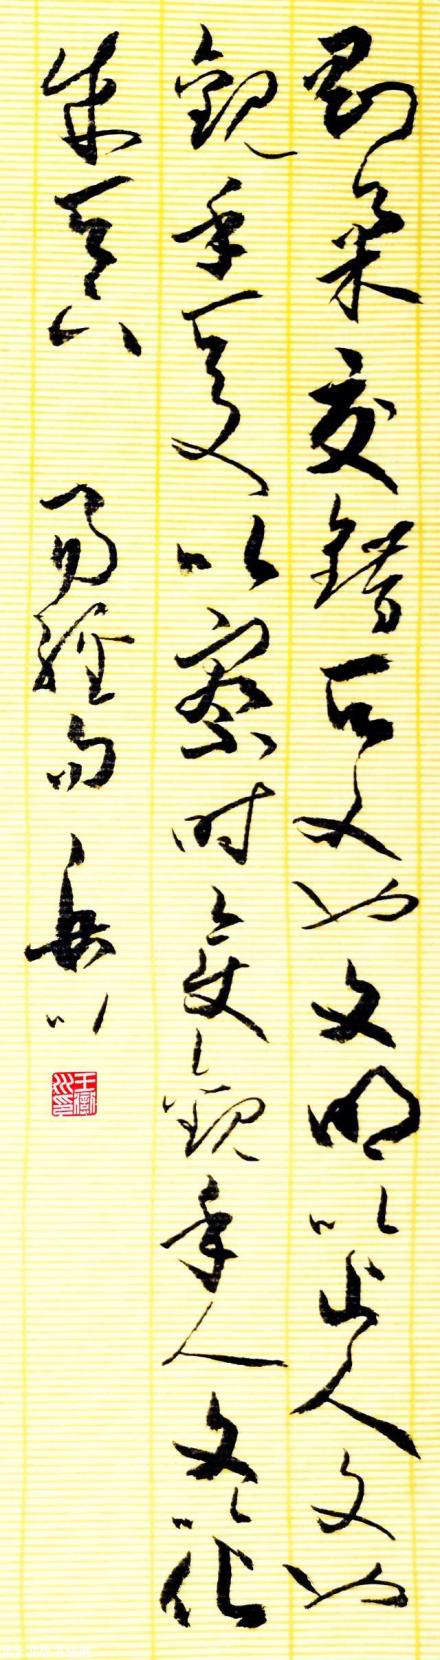 剛柔交錯天文也文明以止人文也
觀乎天文以察时變觀乎人文以化
成天下 易經句 岳川